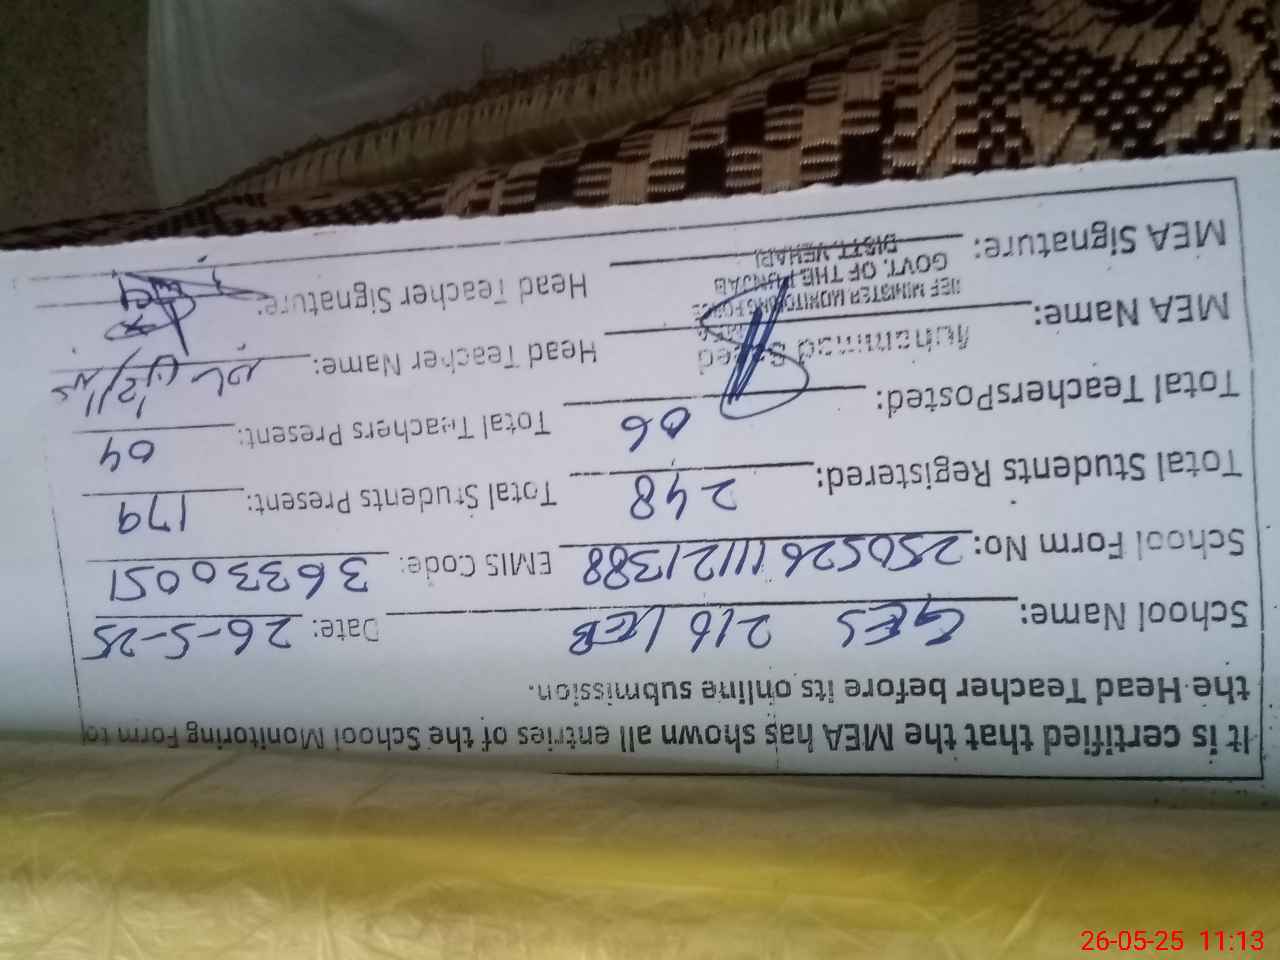 It is certified that the MEA has shown all entries of the School Monitoring Form to
the Head Teacher before its online submission.
School Name: GES 216/EB Date: 26-5-25
School Form No: 25052611121388 EMIS Code: 36330051
Total Students Registered: 248 Total Students Present: 179
Total TeachersPosted: 06 Total Teachers Present: 04
MEA Name: Muhammad Saeed Head Teacher Name:
MEA Signature: Head Teacher Signature:
MINISTER MONITORING FORCE
GOVT. OF THE PUNJAB
DISTT. VEHARI
26-05-25 11:13